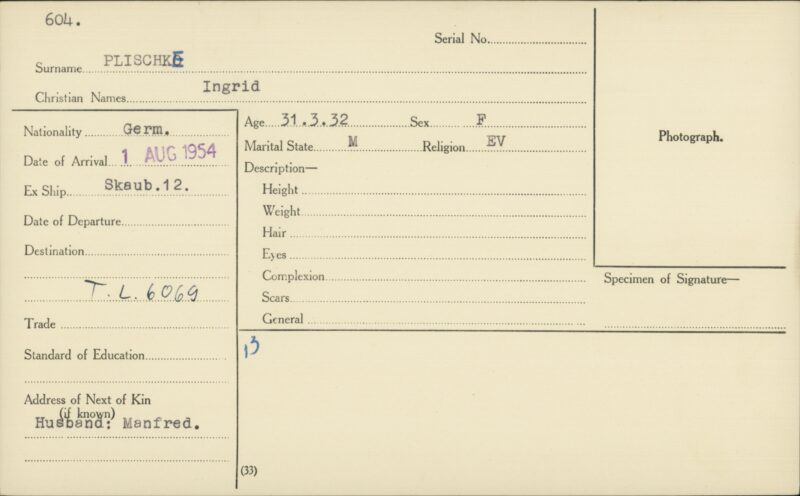 604.
Serial No.
Surname PLISCHKE
Christian Names Ingrid
Nationality Germ.
Date of Arrival 1 AUG 1954
Ex Ship Skaub.12.
Date of Departure
Destination
T.L. 6069
Trade
Standard of Education
Address of Next of Kin
(if known)
Husband: Manfred.
Age 31.3.32 Sex F
Marital State M Religion EV
Description—
Height
Weight
Hair
Eyes
Complexion
Scars
General
13
(33)
Photograph.
Specimen of Signature—